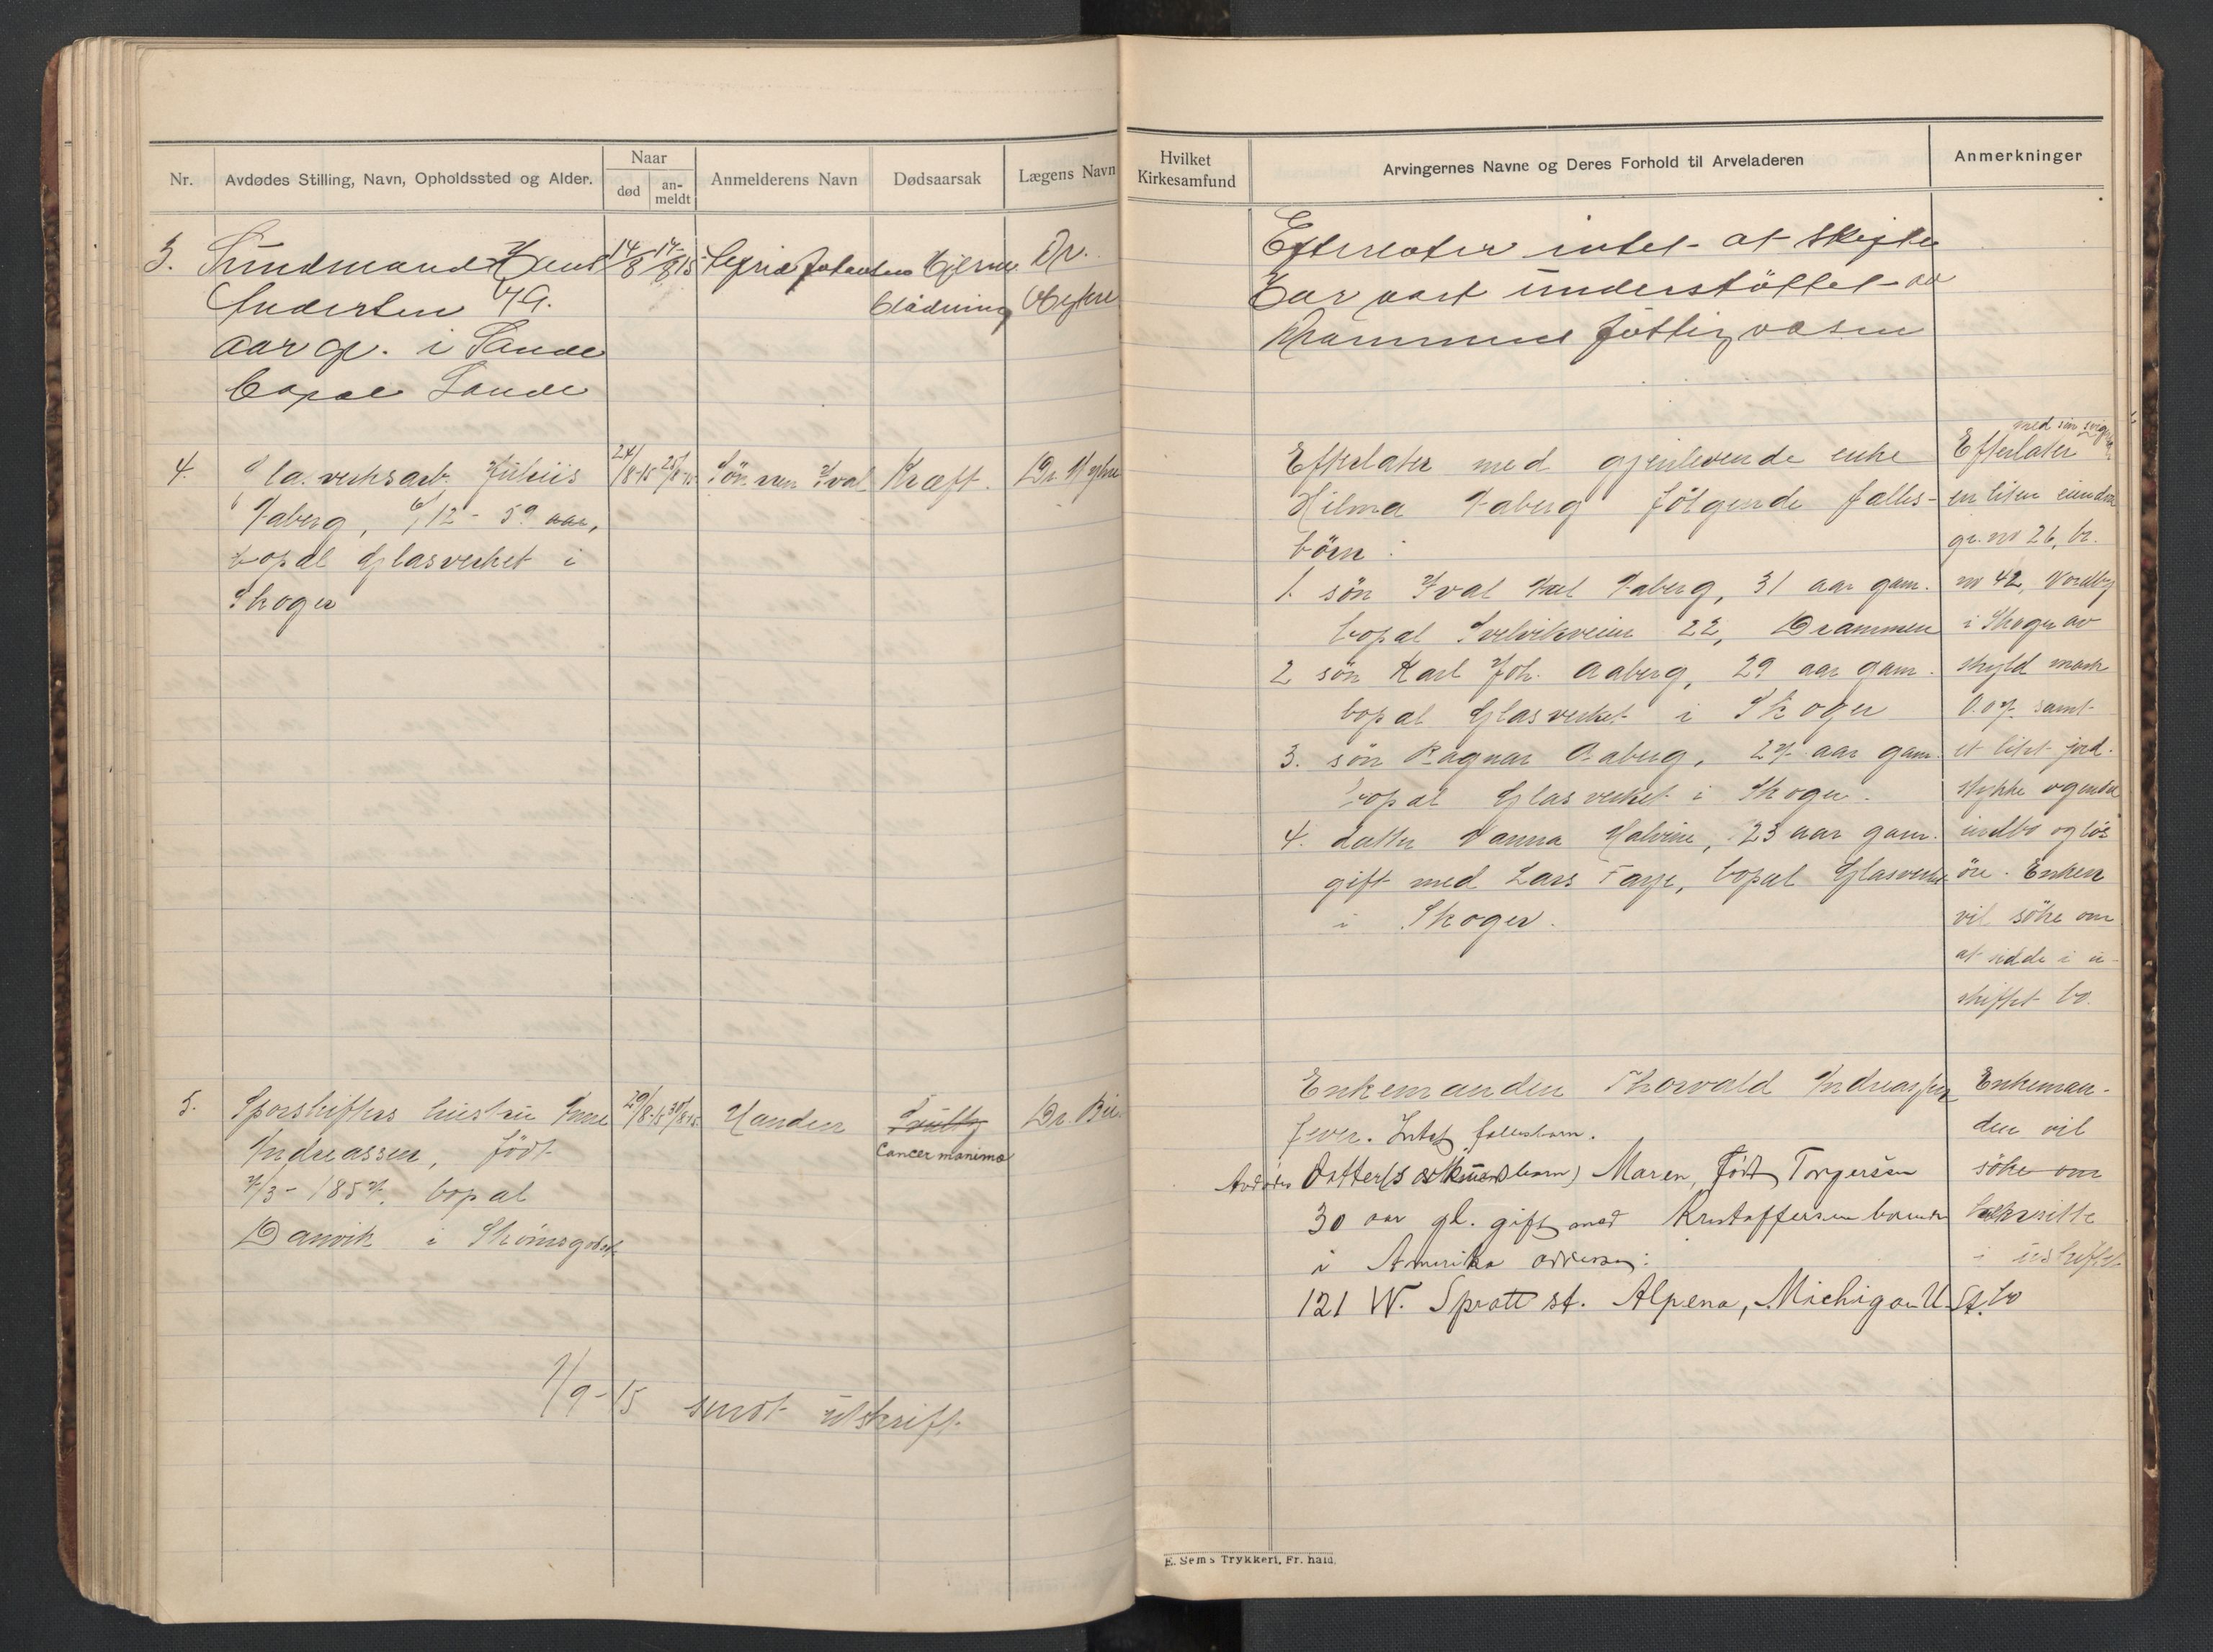 Nr.
Avdødes Stilling, Navn, Opholdssted og Alder.
Naar
død
an-
meldt
Anmelderens Navn
Dødsaarsak
Lægens Navn
Hvilket
Kirkesamfund
Arvingernes Navne og Deres Forhold til Arveladeren
Anmerkninger
3.
14/8
17/8 15
Dr.
blødning
Andersen 79.
aar gl. i Sande
bopæl Sande
Efterlater intet at skifte
Har vært understøttet av
Drammens fattigvæsen
4.
Gla.verksarb. Julius
Aaberg, 6/12 - 59 aar,
bopæl Glasverket i
Skoger
24/8-15
25/8-15
Sönnen Ival
Kræft.
Dr. Myhre
Efterlater med gjenlevende enke
Hilma Aaberg følgende fælles-
börn:
1. sön Ival Aaberg, 31 aar gam.
bopæl Svelvikveien 22, Drammen
2 sön Karl Joh. Aaberg, 29 aar gam.
bopæl Glasverket i Skoger
3. sön Ragnar Aaberg, 27 aar gam.
bopæl Glasverket i Skoger.
4. datter Hanna Halvine, 23 aar gam.
gift med Lars Faye, bopæl Glasverket
i Skoger.
med sin
Efterlater
en liten eiendom
gr. no 26, br.
no 42, Nordby
i Skoger av
skyld mark
0.07 samt
et litet jord-
stykke
indbo og lös
öre. Enken
vil söke om
at sidde i u-
skiftet bo.
5.
Sporskifters hustru Anne
Andreassen, født
7/3- 1857. bopæl
Danvik i Skoger
29/8-15
30/8-15
Manden
Cancer mamma
Dr. Bie
Enkemanden Thorvald Andreassen
lever. Intet fællesbarn.
Avdødes Datter Maren, født Torgersen
30 aar gl. gift med Kristoffersen boende
i Amerika adresse:
121 W. Spratt st. Alpena, Michigan U. St.
Enkeman-
den vil
söke om
i uskiftet
bo
1/9-15 sendt utskrift
E. Sems Trykkeri, Fr. hald.